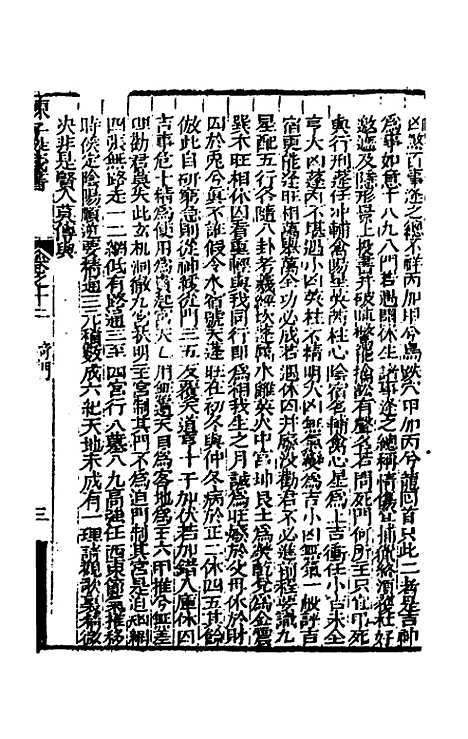 凶煞百事逢之總不祥丙加甲兮鳥跌穴甲加丙兮龍回首只此二者是吉神
為事如意十八九八門若遇開休生諸事逢之總稱情傷宜捕獵終須獲杜好
邀遮及隱形景上投書并破陣驚能擒訟有聲名若問死門何所主只宜弔死
與行刑蓬任冲輔禽陽星英芮柱心陰宿名輔禽心星為上吉衝任小吉未全
亨大凶蓬芮不堪遇小凶英柱不精明大凶無氣變為吉小凶無氣一般評吉
宿更能逢旺相萬舉萬全功必成若遇休囚并廢沒勸君不必進前程要識九
星配五行各隨八卦考羲經坎逢蓬水離英火中宮坤艮土為營乾兌為金震
巽木旺相休囚看重輕與我同行即為相我生之月誠為旺廢於父母休於財
囚於鬼兮真不誣假令水宿號天蓬旺在初冬與仲冬病於正二休四五其餘
倣此自研窮急則從神緩從門三五反覆天道亨十干加伏若加錯入庫休囚
吉事危十精為使用為貴起宮天乙用無遺天目為客地為主六甲推兮無差
理勸君莫失此玄机洞徹九宮扶明主宮制其門不為迫門制其宮是迫
四張無路走一二網低有路通三至四宮行入墓八九高強任西東節氣推移
時候定陰陽順逆要精通三元積數成六紀天地未成有一理請觀歌裏精微
訣非是賢人莫傳與
卷之十二 奇門 三